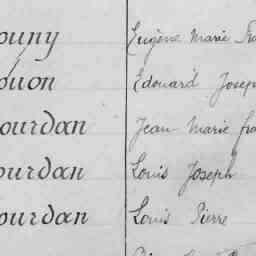 ouny Eugène Marie
ouon Edouard Josep
ourdan Jean Marie fra
ourdan Louis Joseph
ourdan Louis Pierre